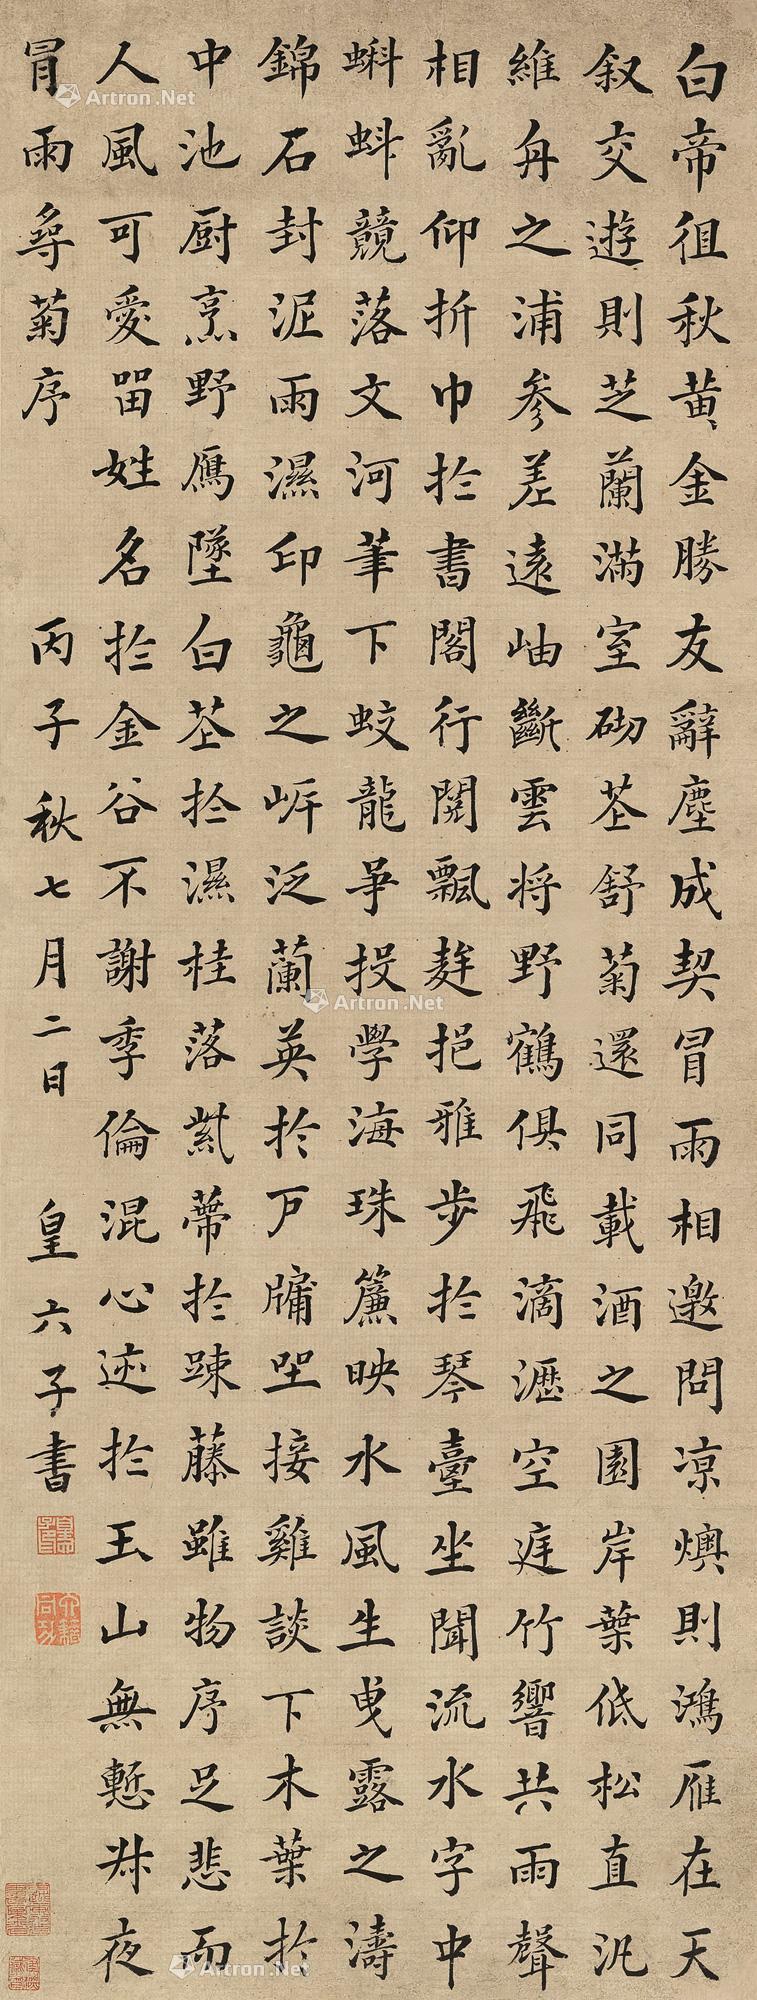 白帝徂秋黄金勝友辭塵成契冒雨相邀問凉燠則鴻雁在天
叙交遊則芝蘭滿室砌花舒菊還同載酒之園岸葉低松直汎
維舟之浦參差遠岫斷雲将野鶴俱飛滴瀝空庭竹響共雨聲
相亂仰折巾於書閣行闋飄䴰挹雅步於琴臺坐聞流水字中
蝌蚪競落文河筆下蛟龍爭投學海珠簾映水風生曳露之濤
錦石封泥雨濕印龜之岸泛蘭英於户牖坐接雞談下木葉於
中池厨烹野鴈墜白花於濕桂落紫蔕於踈藤雖物序足悲而
人風可愛留姓名於金谷不謝季倫混心迹於玉山無慙叔夜
冒雨尋菊序 丙子秋七月二日 皇六子書
Artron.Net
Artron.Net
Artron.Net